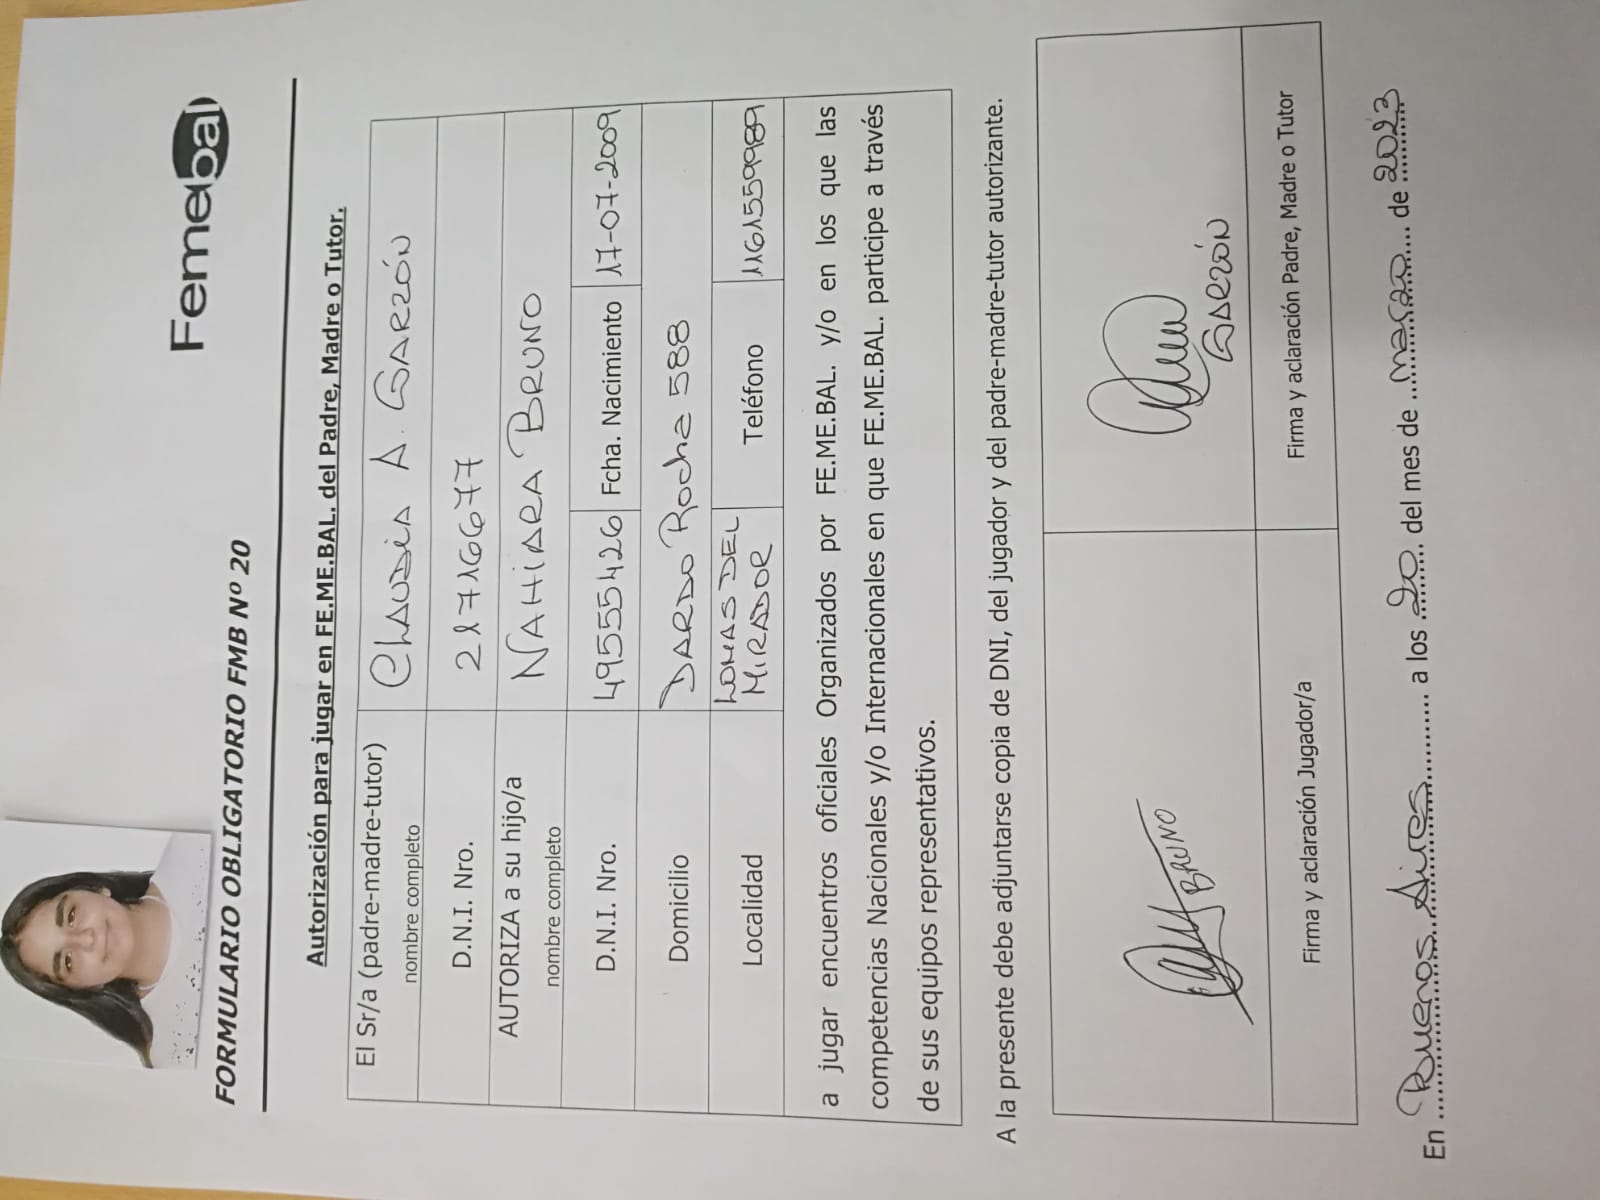 Femebal
FORMULARIO OBLIGATORIO FMB Nº 20
Autorización para jugar en FE.ME.BAL. del Padre, Madre o Tutor.
El Sr/a (padre-madre-tutor) CLAUDIA A. GARZÓN
nombre completo
D.N.I. Nro. 21716677
AUTORIZA a su hijo/a NAHIARA BRUNO
nombre completo
D.N.I. Nro. 49555426 Fcha. Nacimiento 17-07-2009
Domicilio DARDO Rocha 588
Localidad LOMAS DEL MIRADOR Teléfono 1161559989
a jugar encuentros oficiales Organizados por FE.ME.BAL. y/o en los que las
competencias Nacionales y/o Internacionales en que FE.ME.BAL. participe a través
de sus equipos representativos.
A la presente debe adjuntarse copia de DNI, del jugador y del padre-madre-tutor autorizante.
BRUNO
GARZÓN
Firma y aclaración Jugador/a
Firma y aclaración Padre, Madre o Tutor
En Buenos Aires a los 20 del mes de marzo de 2023